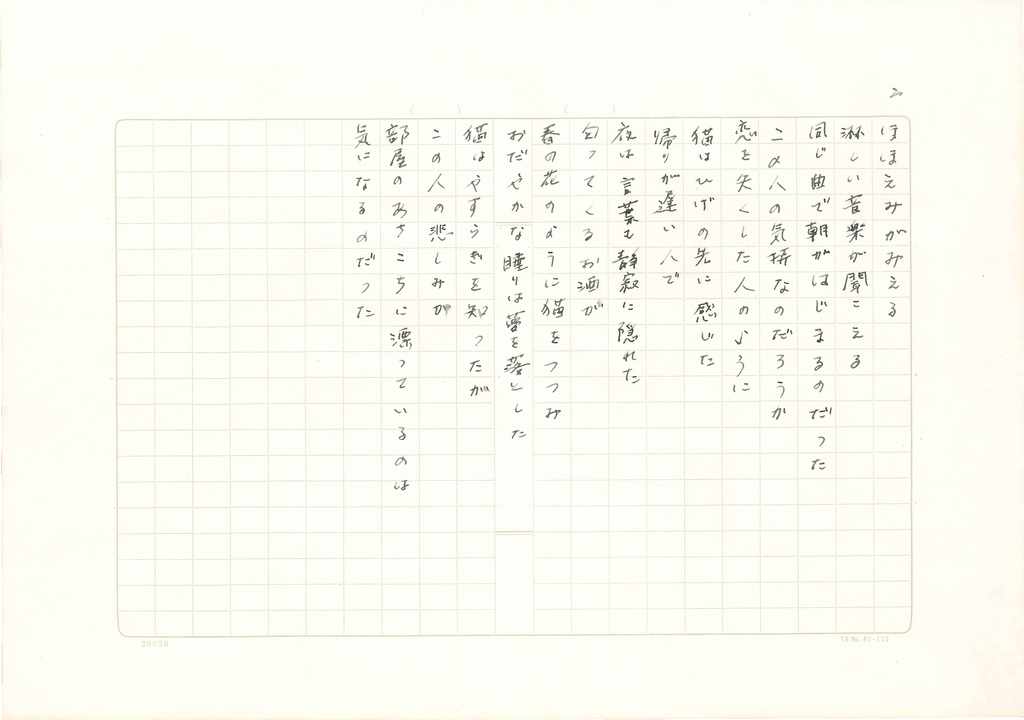 2
ほほえみがみえる
淋しい音楽が聞こえる
同じ曲で朝がはじまるのだった
この人の気持なのだろうか
恋を失くした人のように
猫はひげの先に感じた
帰りが遅い人で
夜は言葉も静寂に隠れた
匂ってくるお酒が
春の花のように猫をつつみ
おだやかな睡りは夢を落とした
猫はやすらぎを知ったが
この人の悲しみが
部屋のあちこちに漂っているのは
気になるのだった
20×20